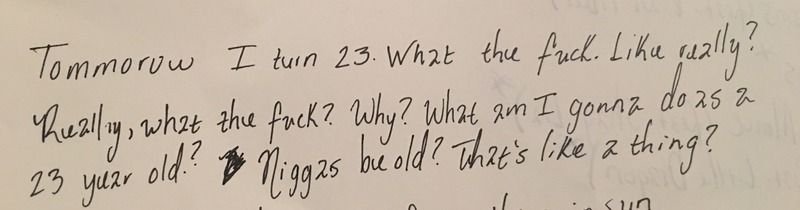 Tommorow I turn 23. What the fuck. Like really?
Really, what the fuck? Why? What am I gonna do as a
23 year old? Niggas be old? That's like a thing?